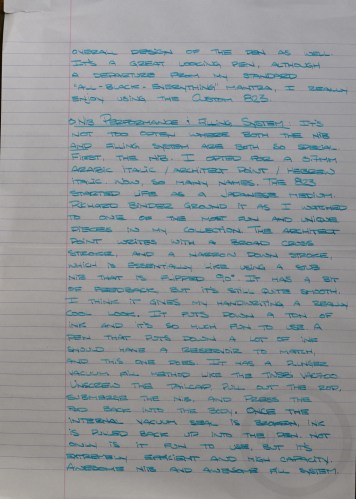 OVERALL DESIGN OF THE PEN AS WELL
IT'S A GREAT LOOKING PEN, ALTHOUGH
A DEPARTURE FROM MY STANDARD
"ALL-BLACK-EVERYTHING" MANTRA, I REALLY
ENJOY USING THE CUSTOM 823.
NIB PERFORMANCE & FILLING SYSTEM. IT'S
NOT TOO OFTEN WHERE BOTH THE NIB
AND FILLING SYSTEM ARE BOTH SO SPECIAL
FIRST, THE NIB. I OPTED FOR A 0.7MM
ARABIC ITALIC / ARCHITECT POINT / HEBREW
ITALIC NOW, SO MANY NAMES. THE 823
STARTED LIFE AS A JAPANESE MEDIUM.
BINDER GROUND IT AS I WATCHED
TO ONE OF THE MOST FUN AND UNIQUE
PIECES IN MY COLLECTION. THE ARCHITECT
POINT WRITES WITH A BROAD CROSS
STROKE, AND A NARROW DOWN STROKE,
WHICH IS ESSENTIALLY LIKE USING A STUB
NIB THAT IS FLIPPED 90° IT HAS A BIT
OF FEEDBACK, BUT IT'S STILL QUITE SMOOTH.
I THINK IT GIVES MY HANDWRITING A REALLY
COOL LOOK. IT PUTS DOWN A TON OF
INK AND IT'S SO MUCH FUN TO USE A
PEN THAT PUTS DOWN A LOT OF INK
SHOULD HAVE A RESERVOIR TO MATCH,
AND THIS ONE DOES. IT HAS A PLUNGER
VACUUM FILL METHOD LIKE THE TWSBI VAC700
UNSCREW THE TAILCAP, PULL OUT THE ROD,
SUBMERGE THE NIB, AND PRESS THE
ROD BACK INTO THE BODY. ONCE THE
INTERNAL VACUUM SEAL IS BROKEN, INK
IS PULLED BACK UP INTO THE PEN. NOT
ONLY IS IT FUN TO USE, BUT IT'S
EXTREMELY EFFICIENT AND HIGH CAPACITY.
AWESOME NIB AND AWESOME FILL SYSTEM.